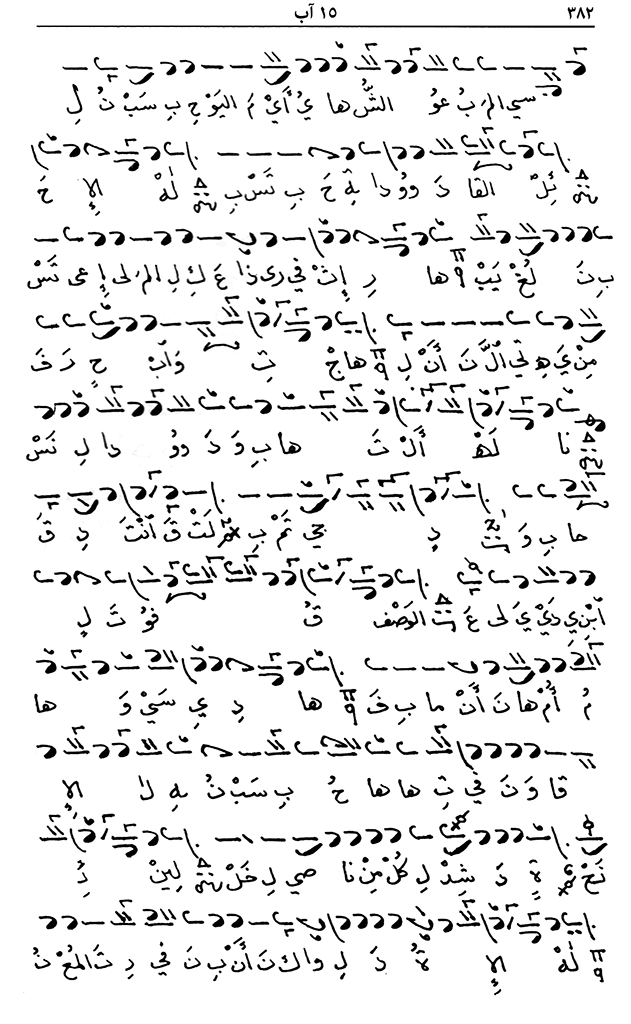 ٣٨٢ ١٥ آب
سي المر بُ عو الشُّ ها يُ أَيْ مَ اليَوْ حِ بِ سَبْ نُ لِ
ئِلْ القا دَ وودا بِهِ حَ بِ تَسْ بِ لهْ الإِ حَ
بِ نَ لُغْ يَبْ ها رِ إِثْ في رى ذا عَ كِ لِ المر لى إِ عى تَسْ
مِنْ يَ هِ تي اللَّ نَ أَنْ لِ هاجْ تِ وَابْ حٍ رَ فَ
نا لَهْ أَلْ تَ ها بِ وَ دَ وو دا لِ نَسْ
حا بِ وَ دِ جي تَمْ بِ لَتْ قَ أنْتَ دِ قَ
ابْنِ ي دَيْ يَ لى عَ الوَصْف قُ فو تَ لٍ
مُ أُمْ ها نَ أَنْ ما بِ فَ ها دِ يِ سَيْ وَ ها
قا وَ نَ في تِ ها ها حُ بِ سَبْ نُ هِ لا الإِ
نَحْ ةٍ دَ شِدْ لِ كُلْ مِنْ نا صي لِ خَلْ لِينْ دِ
لهْ الإِ ةُ دَ لِ وا كِ نَ أَنْ بِ نَ في رِ تَ المُعْ نُ